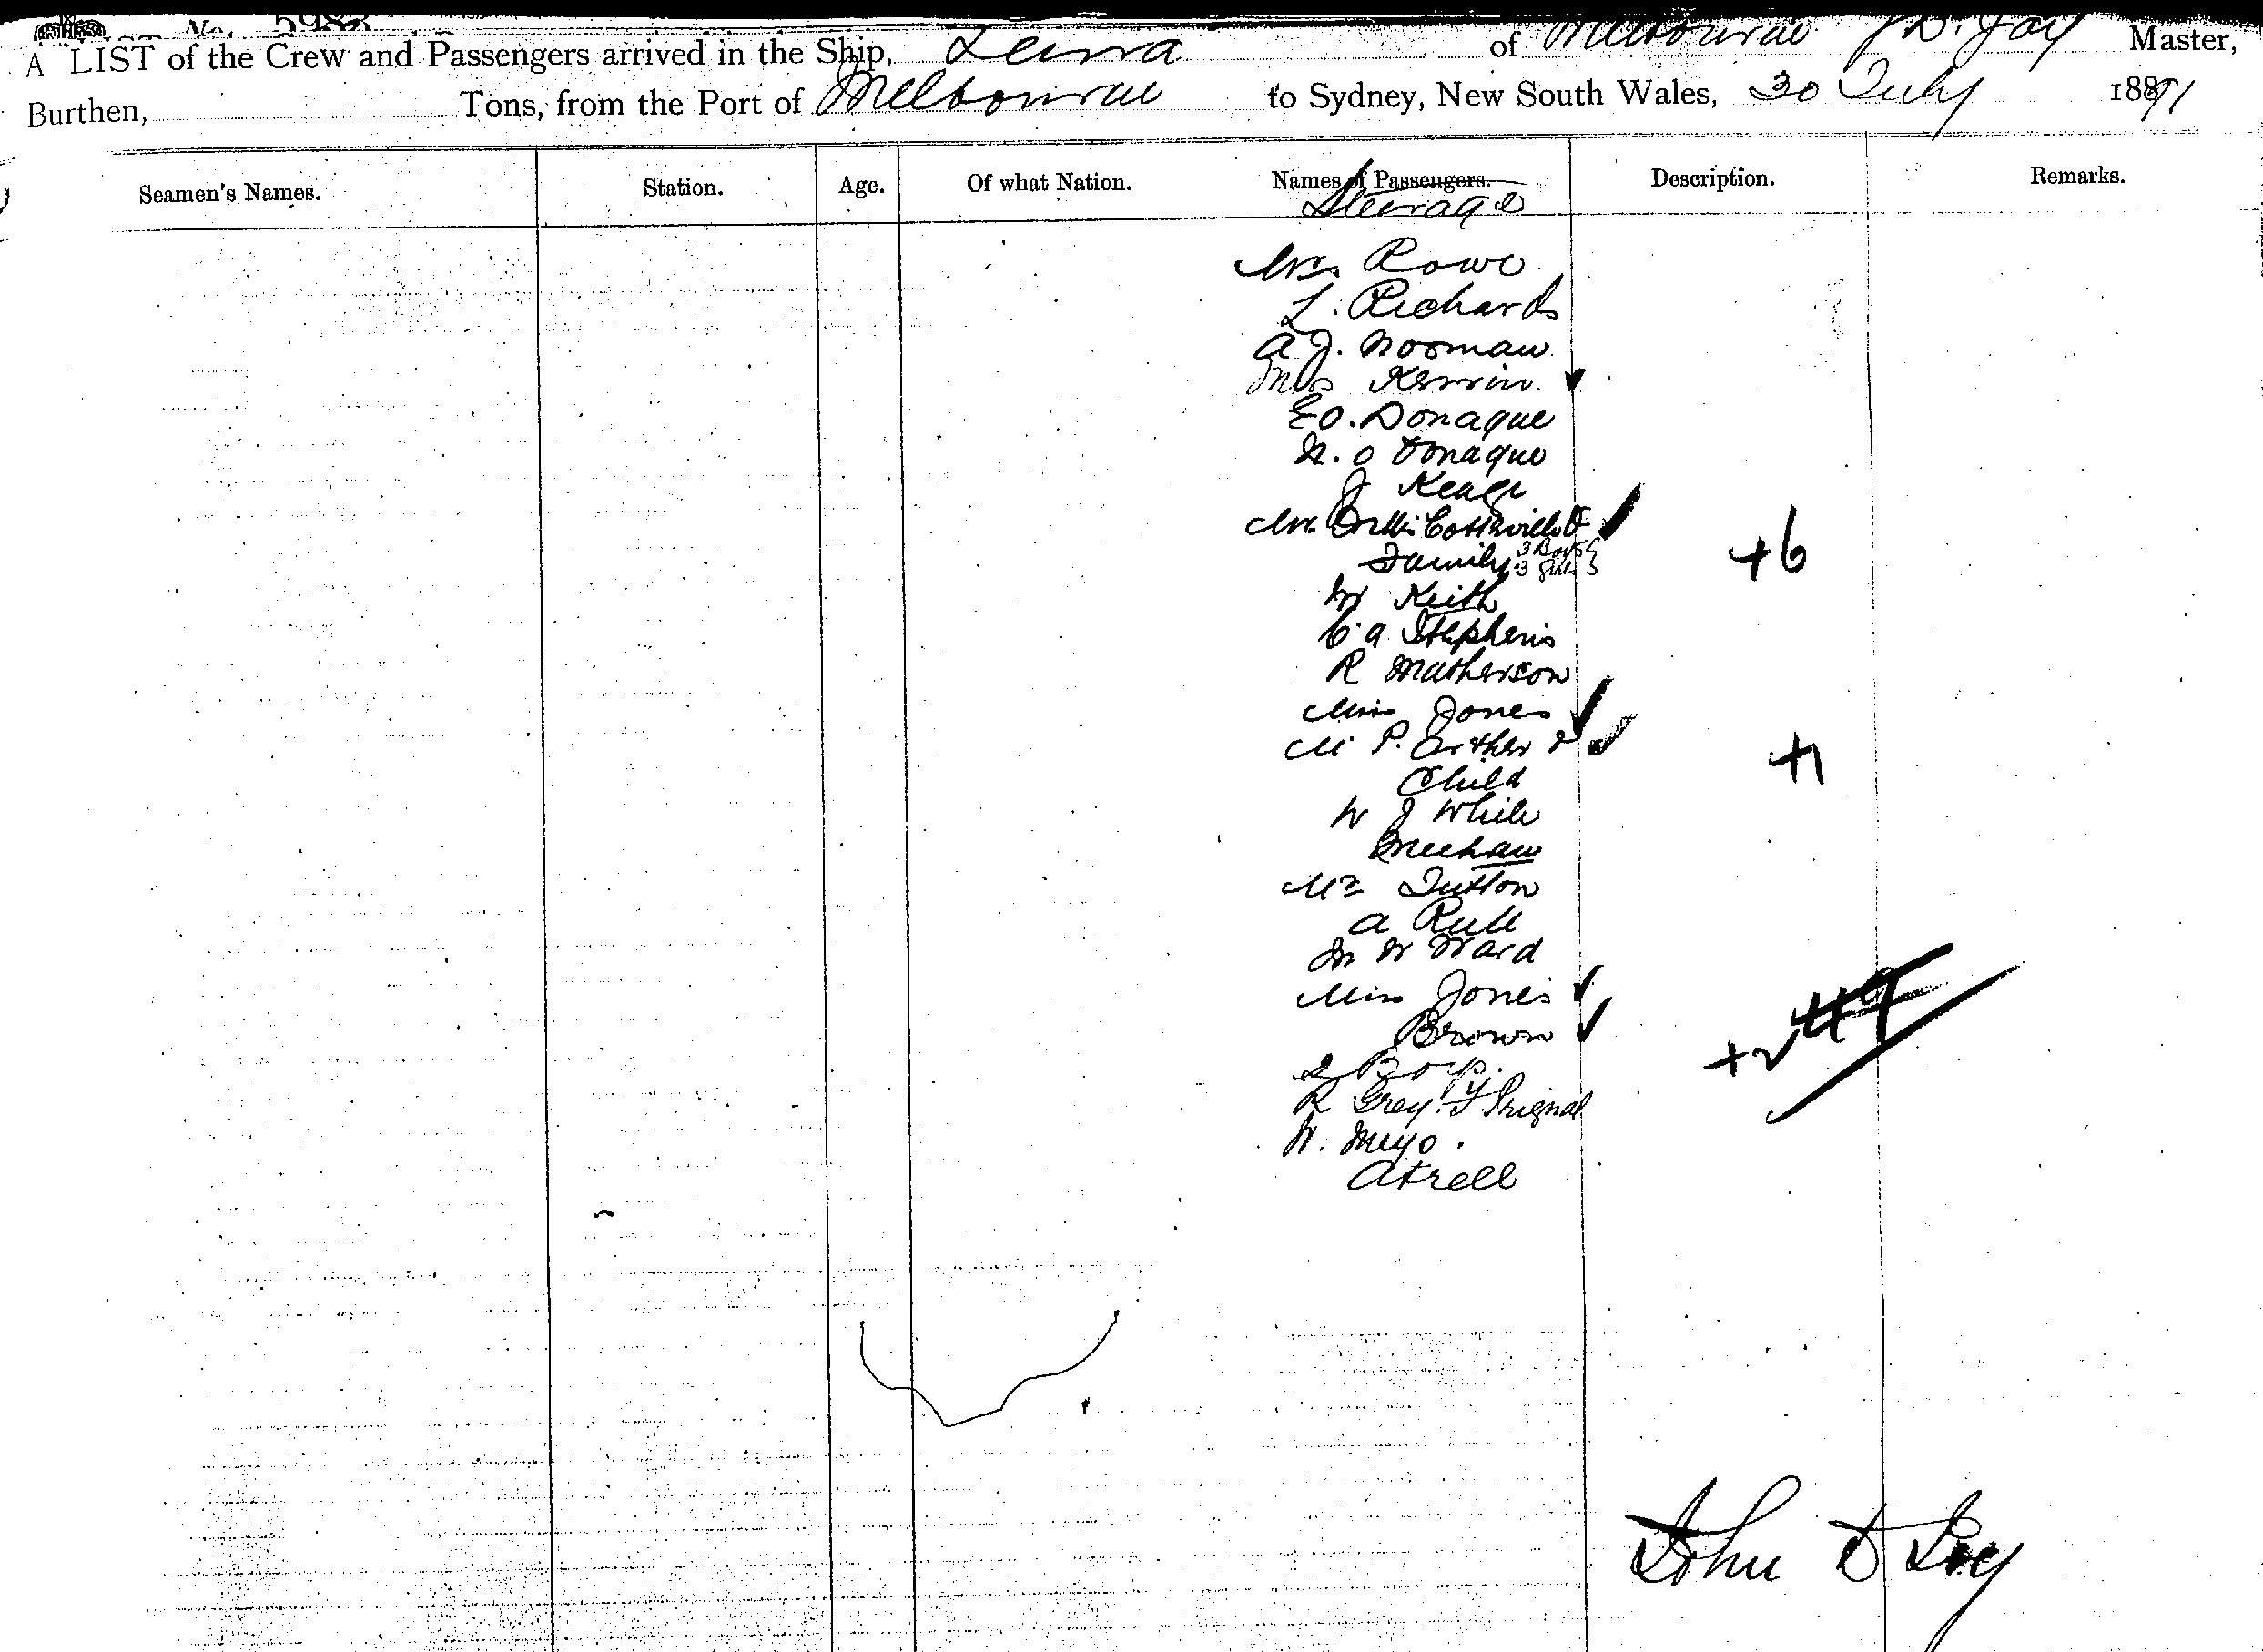 No. 5983
A LIST of the Crew and Passengers arrived in the Ship, of Melbourne J D. Joy Master,
Burthen, Tons, from the Port of Melbourne to Sydney, New South Wales, 30 July 1891
Seamen's Names. Station. Age. Of what Nation. Names of Passengers. Description. Remarks.
Steerage
Rowe
L. Richards
A J. Norman
Mrs Kerrin
E O. Donague
N. O Donague
J
Mrs
Family 3 Boys 3 Girls
+6
W Keith
C. A Stephens
R Matherson
Miss Jones
M P. Arther &
Child
+1
W J White
Meehan
Mr Sutton
A Rull
M W Ward
Miss Jones
Brown
+2 49
R Grey. Prignal
W. Meyo.
Atrell
John D Joy